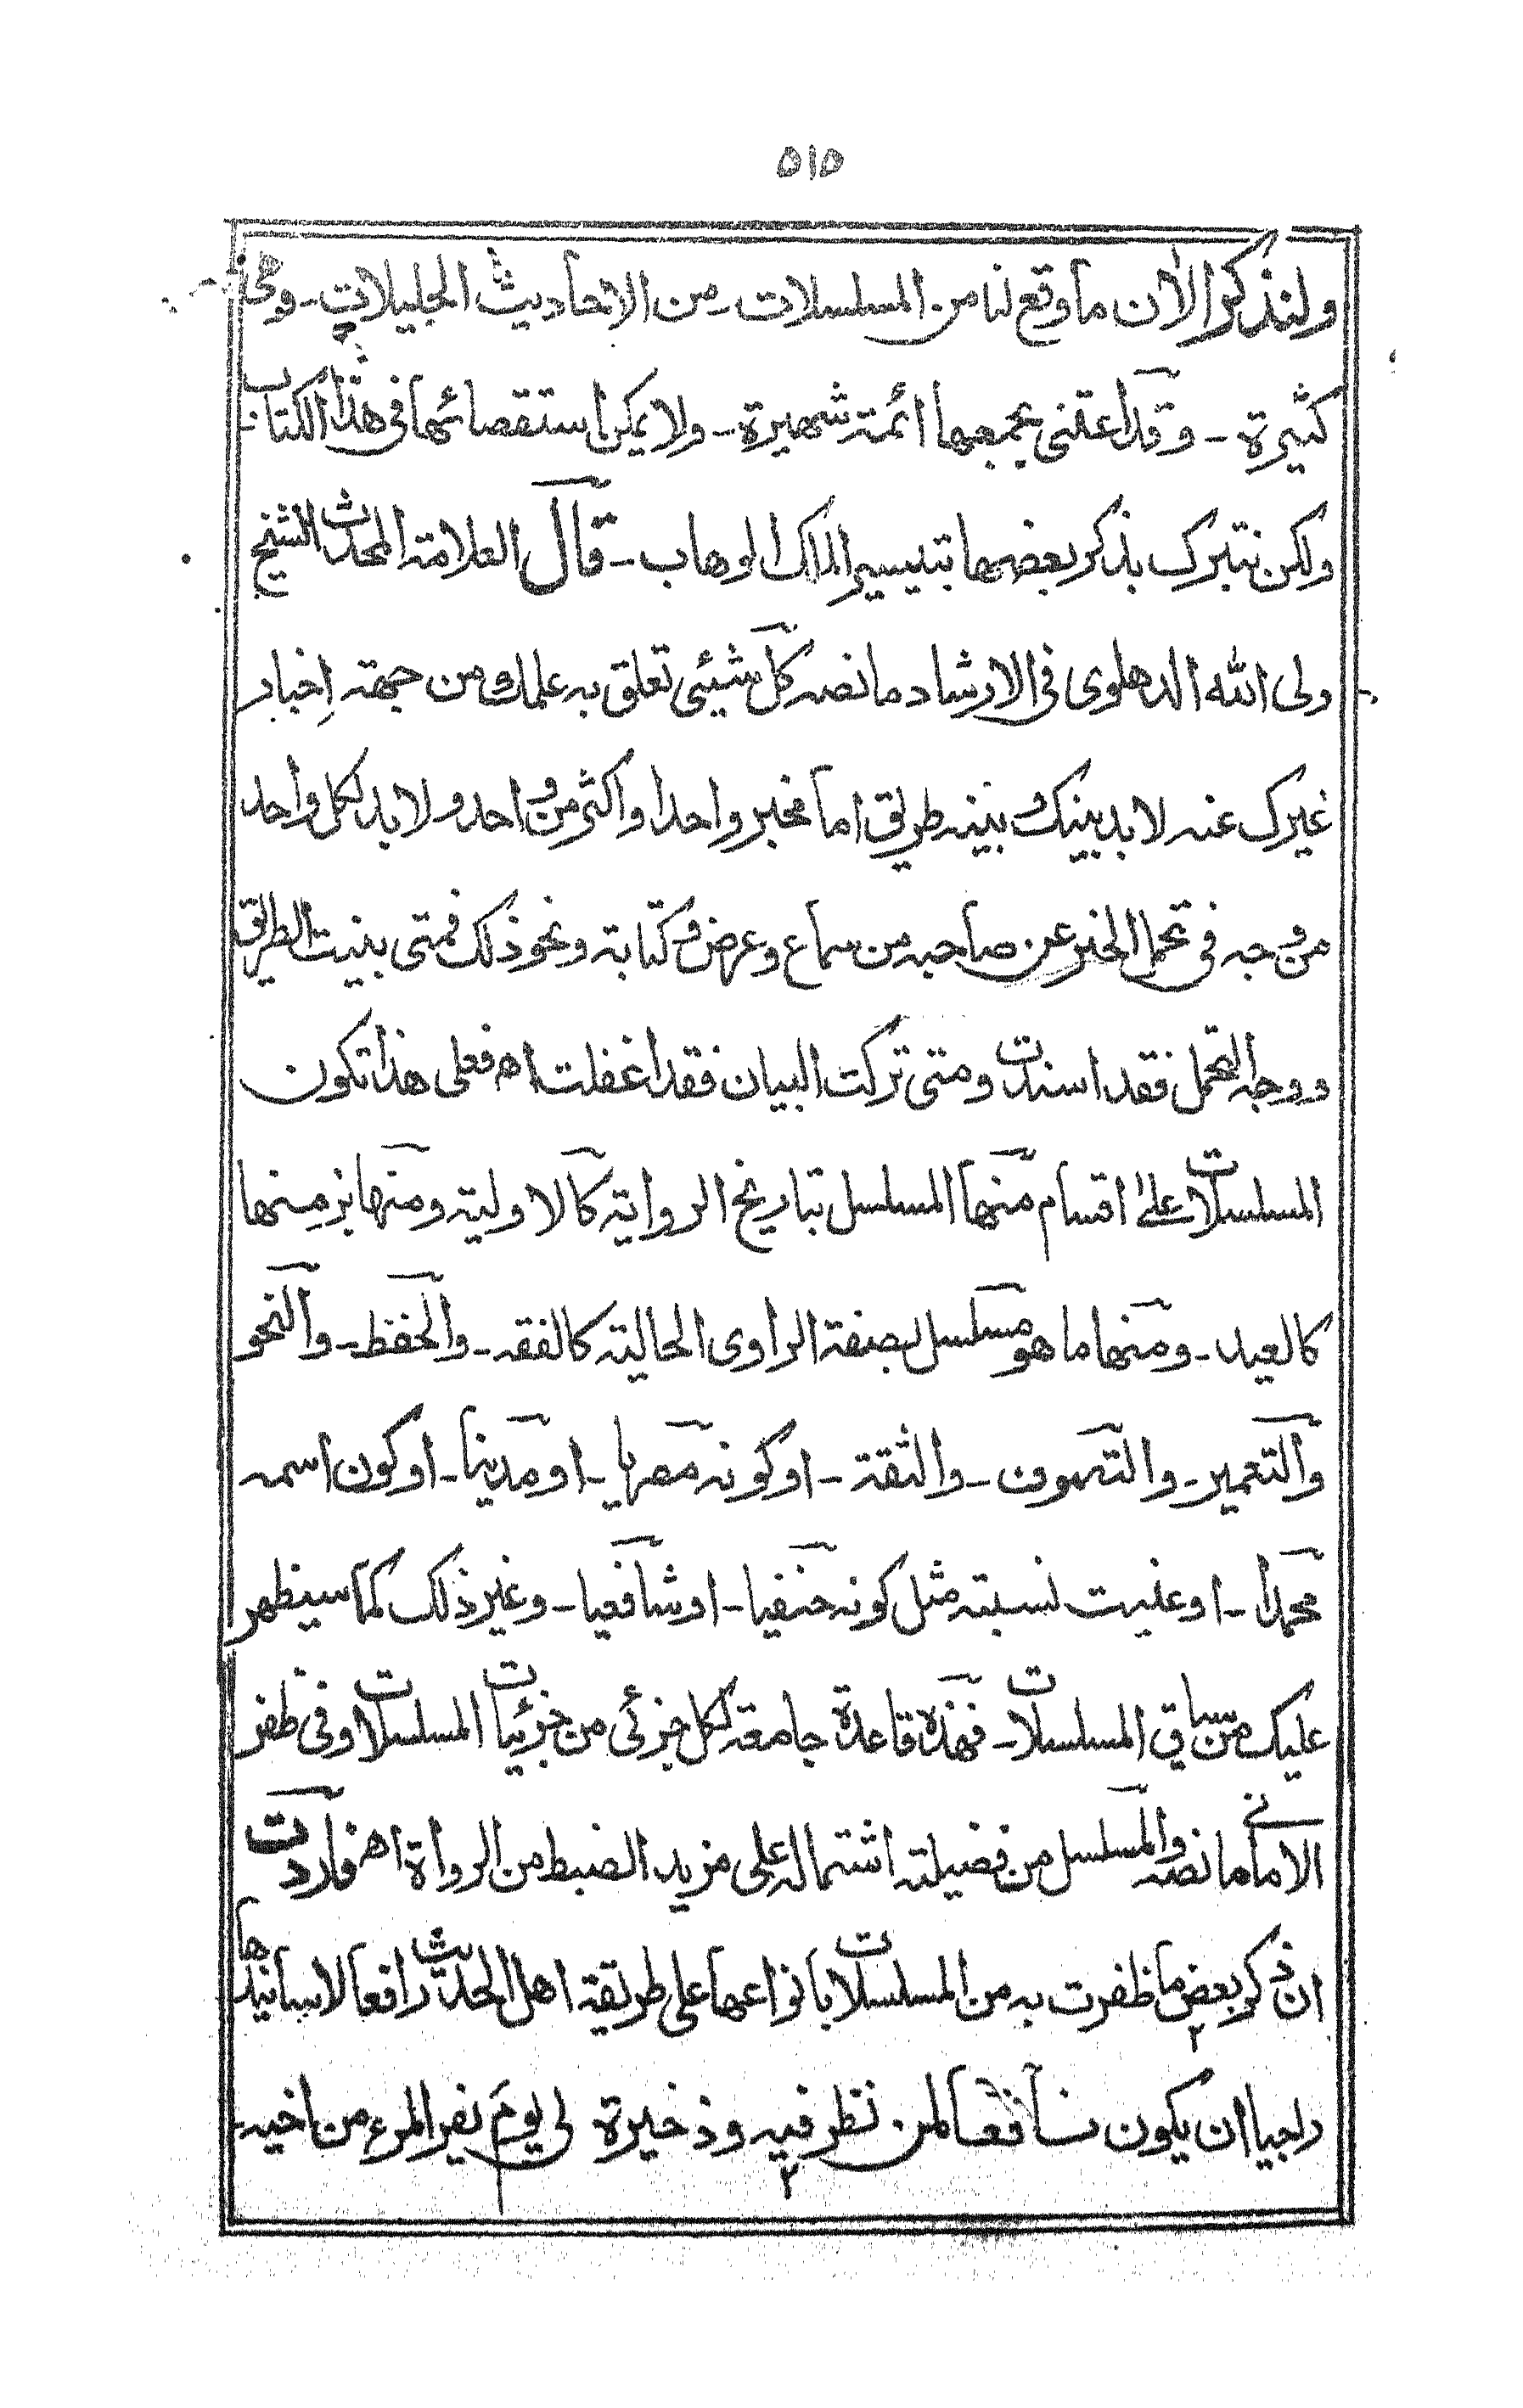 ٥١٥
ولنذكر الاٰن ما وقع لنا من المسلسلات ـ من الاحاديث الجليلات ـ وهى
كثيرة ـ وقد اعتنى بجمعها ائمة شهيرة ـ ولا يمكن استقصائها فى هذا الكتاب
ولكن نتبرك بذكر بعضها بتيسير الملك الوهاب ـ قال العلامة المحدث الشيخ
ولى الله الدهلوى فى الارشاد ما نصه كل شيئى تعلق به علمك من جهة إخبار
غيرك عنه لا بد بينك وبينه طريق اما مخبر واحد او اكثر من واحد ولا بد لكل واحد
من وجه فى تحمل الخبر عن صاحبه من سماع وعرض وكتابة ونحو ذلك فمتى بينت الطريق
ووجه التحمل فقد اسندت ومتى تركت البيان فقد اغفلت اھ فعلى هذا تكون
المسلسلات علىٰ اقسام منها المسلسل بتاريخ الرواية كالاولية ومنها بزمنها
كالعيد ـ ومنها ما هو مسلسل بصفة الراوى الحالية كالفقه ـ والحفظ ـ والنحو
والتعمير ـ والتصوف ـ والثقة ـ او كونه مصريا ـ او مدينا ـ او كون اسمه
محمدا ـ او غيبت نسبته مثل كونه حنفيا ـ او شافعيا ـ وغير ذلك كما سيظهر
عليك من سياق المسلسلات ـ فهذه قاعدة جامعة لكل جزئى من جزئيات المسلسلات وفى ظفر
الامانى ما نصه والمسلسل من فضيلته اشتماله على مزيد الضبط من الرواة اھ فاردت
ان ذكر بعض ما ظفرت به من المسلسلات بانواعها على طريقة اهل الحديث رافعا لاسانيدها
٢
راجيا ان يكون نافعا لمن نظر فيه وذخيرة لى يوم يفر المرء من اخيه ـ
٢